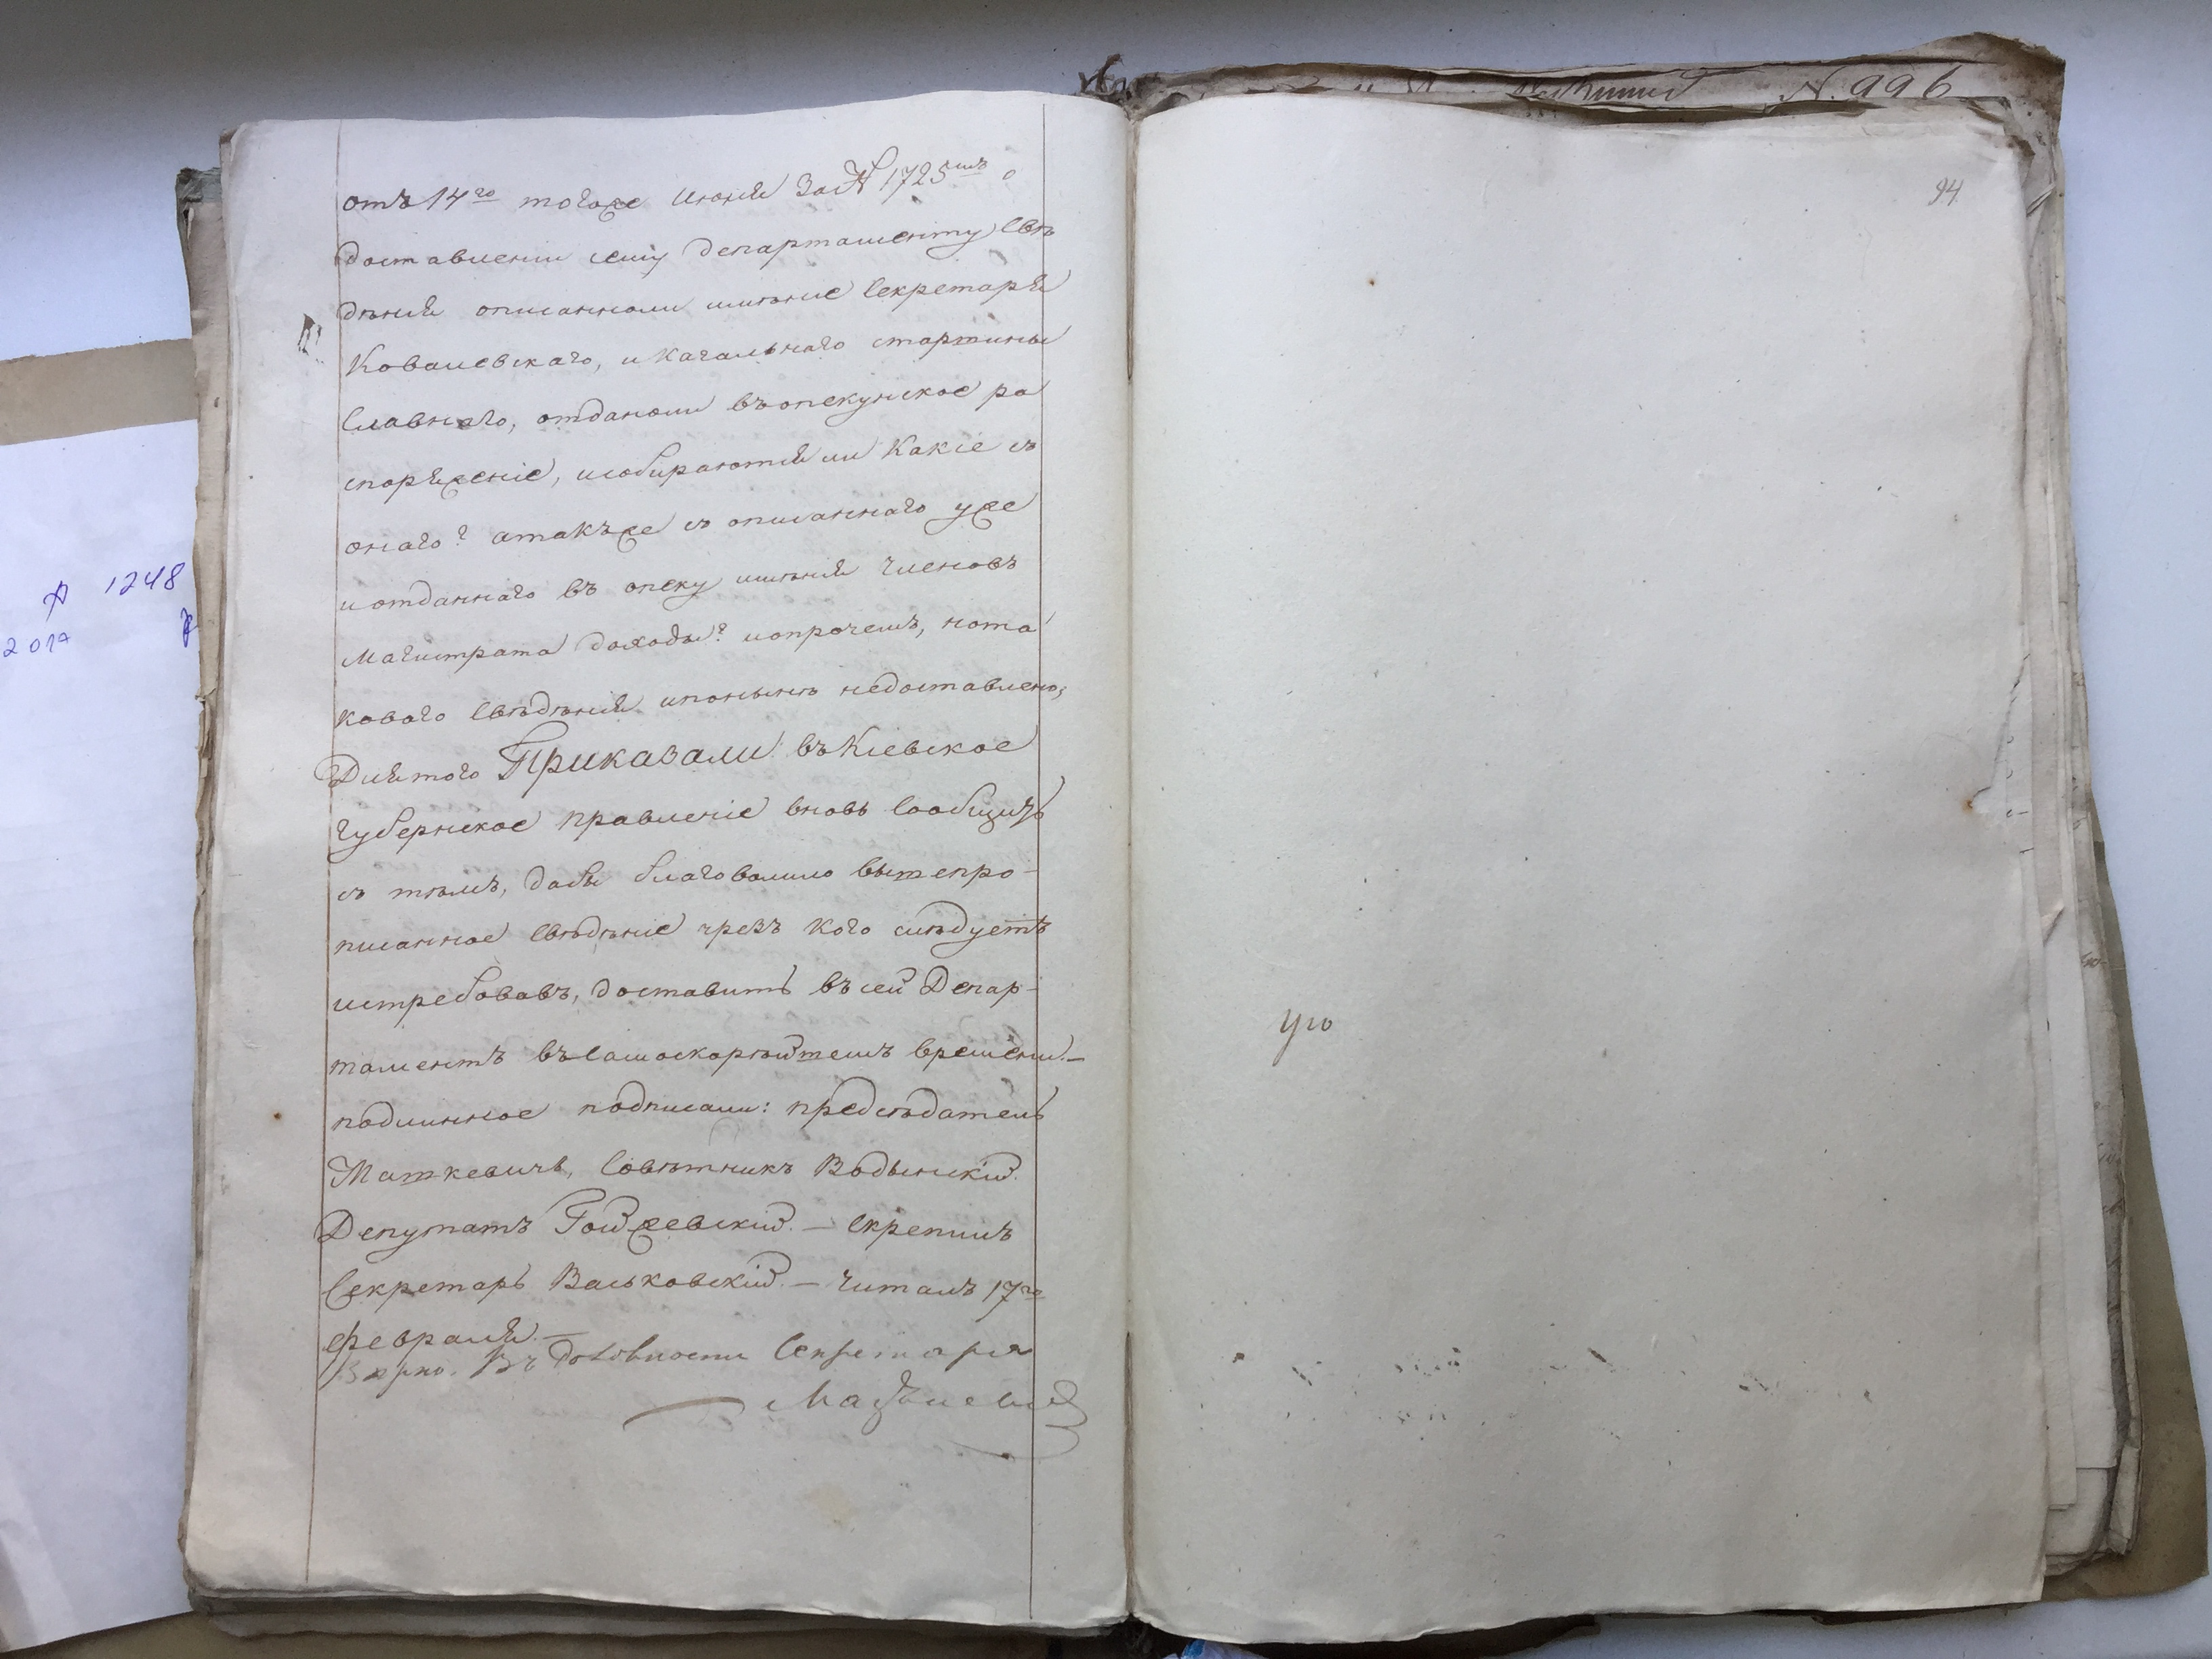 отъ 14го тогоже июня за № 1725мъ о
доставлении сему департаменту све
дѣния описанноли имѣние Секретаря
Ковалевскаго, и кагальнаго старшины
Славнаго, отданоли въ опекунское ра
споряжение, и собираются ли какіе съ
онаго? а такъже съ описаннаго уже
и отданнаго въ опеку имѣния членовъ
Магистрата доходы? и о прочемъ, но та
коваго свѣдѣния и понынѣ недоставлено;
Для того Приказали: въ Кіевское
Губернское правленіе вновь сообщить
съ тѣмъ, дабы благоволило вышепро-
писанное свѣдѣніе чрезъ кого слѣдуетъ
истребовавъ, доставить въ сей Депар-
таментъ въ самоскорѣйшемъ времени.—
подлинное подписали: предсѣдатель
Машкевичъ, Совѣтникъ Водынскій.
Депутатъ Гойжевский. — скрепилъ
Секретарь Васьковскій. — Читалъ 17го
февраля. —
Вѣрно. Въ должности Секретаря
94
N. 996
№ 1248